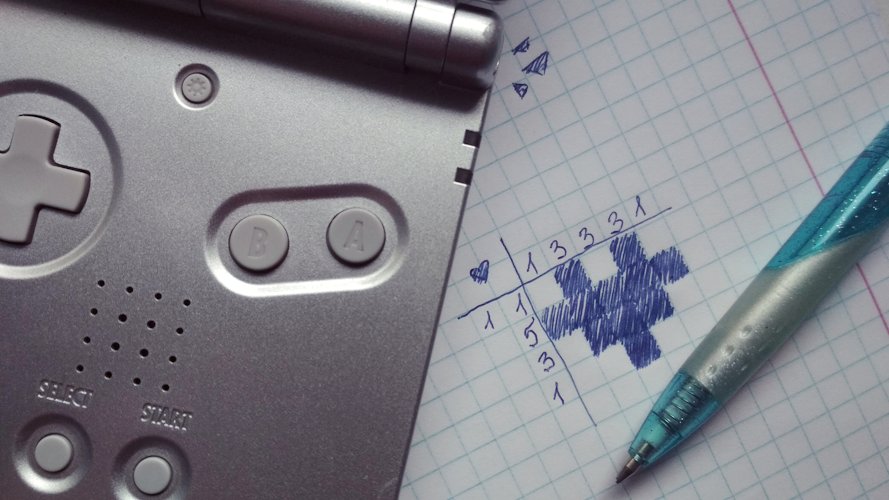 B A
SELECT
START
1 3 3 3 1
1 1
5
3
1